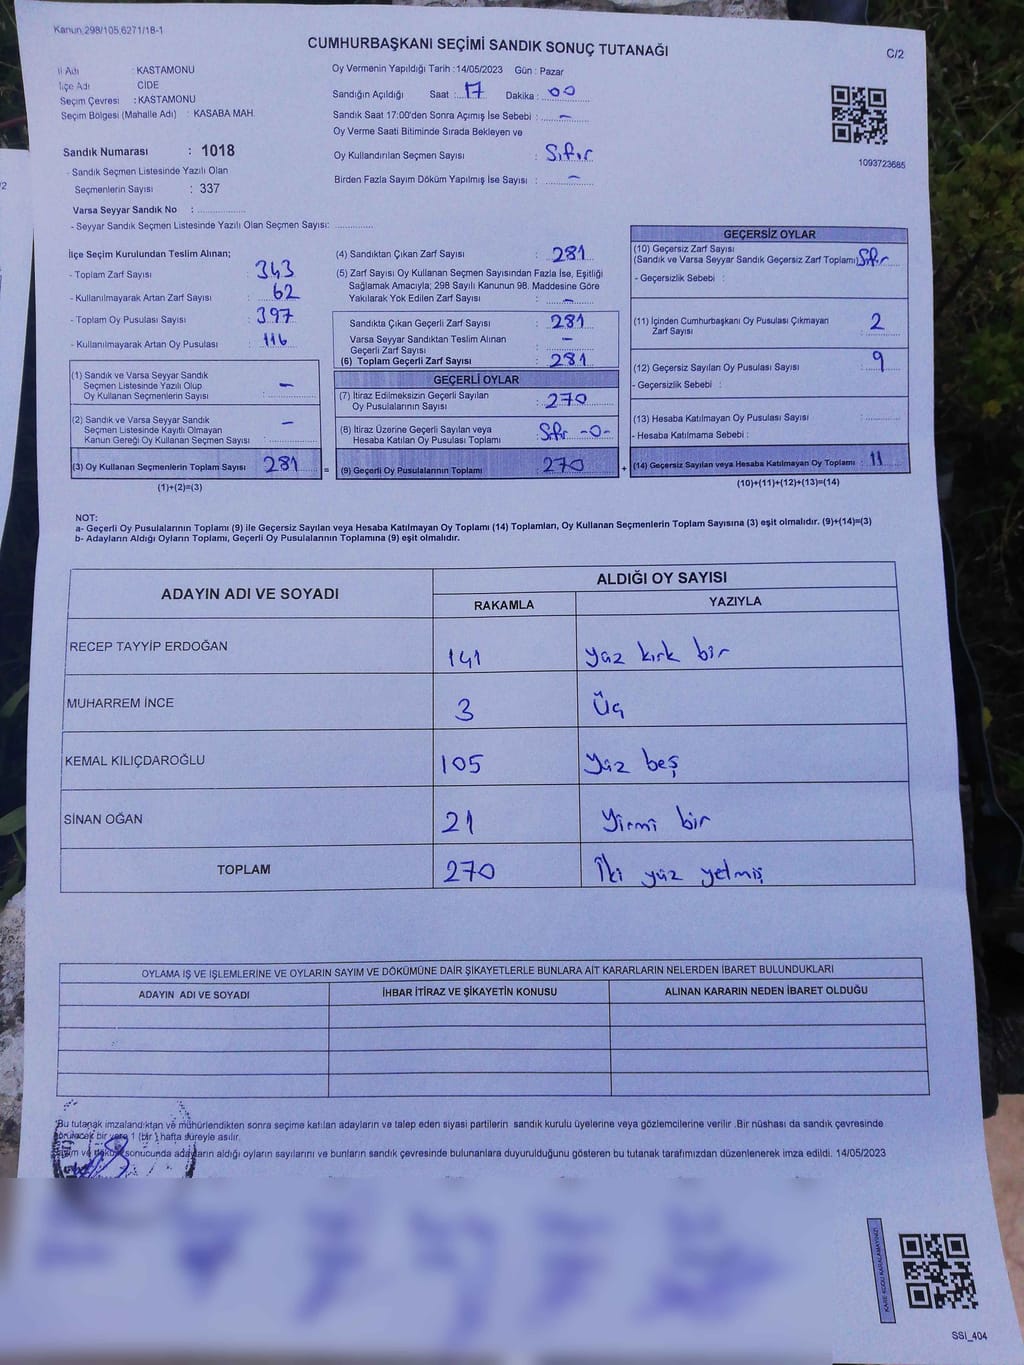 Kanun.298/105,6271/18-1
CUMHURBAŞKANI SEÇİMİ SANDIK SONUÇ TUTANAĞI
C/2
İl Adı : KASTAMONU
İlçe Adı : CİDE
Seçim Çevresi : KASTAMONU
Seçim Bölgesi (Mahalle Adı) : KASABA MAH.
Sandık Numarası : 1018
- Sandık Seçmen Listesinde Yazılı Olan
Seçmenlerin Sayısı : 337
Varsa Seyyar Sandık No : ................
- Seyyar Sandık Seçmen Listesinde Yazılı Olan Seçmen Sayısı: .............
Oy Vermenin Yapıldığı Tarih : 14/05/2023 Gün : Pazar
Sandığın Açıldığı Saat : 17 Dakika : 00
Sandık Saat 17:00'den Sonra Açımış İse Sebebi : –
Oy Verme Saati Bitiminde Sırada Bekleyen ve
Oy Kullandırılan Seçmen Sayısı : Sıfır
Birden Fazla Sayım Döküm Yapılmış İse Sayısı : –
1093723685
İlçe Seçim Kurulundan Teslim Alınan;
- Toplam Zarf Sayısı : 343
- Kullanılmayarak Artan Zarf Sayısı : 62
- Toplam Oy Pusulası Sayısı : 397
- Kullanılmayarak Artan Oy Pusulası : 116
(1) Sandık ve Varsa Seyyar Sandık
Seçmen Listesinde Yazılı Olup
Oy Kullanan Seçmenlerin Sayısı : –
(2) Sandık ve Varsa Seyyar Sandık
Seçmen Listesinde Kayıtlı Olmayan
Kanun Gereği Oy Kullanan Seçmen Sayısı : –
(3) Oy Kullanan Seçmenlerin Toplam Sayısı 281 =
(1)+(2)=(3)
(4) Sandıktan Çıkan Zarf Sayısı : 281
(5) Zarf Sayısı Oy Kullanan Seçmen Sayısından Fazla İse, Eşitliği
Sağlamak Amacıyla; 298 Sayılı Kanunun 98. Maddesine Göre
Yakılarak Yok Edilen Zarf Sayısı : –
Sandıkta Çıkan Geçerli Zarf Sayısı : 281
Varsa Seyyar Sandıktan Teslim Alınan
Geçerli Zarf Sayısı : –
(6) Toplam Geçerli Zarf Sayısı : 281
GEÇERLİ OYLAR
(7) İtiraz Edilmeksizin Geçerli Sayılan
Oy Pusulalarının Sayısı : 270
(8) İtiraz Üzerine Geçerli Sayılan veya
Hesaba Katılan Oy Pusulası Toplamı : Sıfır -0-
(9) Geçerli Oy Pusulalarının Toplamı : 270 +
GEÇERSİZ OYLAR
(10) Geçersiz Zarf Sayısı
(Sandık ve Varsa Seyyar Sandık Geçersiz Zarf Toplamı) Sıfır
- Geçersizlik Sebebi :
(11) İçinden Cumhurbaşkanı Oy Pusulası Çıkmayan
Zarf Sayısı : 2
(12) Geçersiz Sayılan Oy Pusulası Sayısı : 9
- Geçersizlik Sebebi :
(13) Hesaba Katılmayan Oy Pusulası Sayısı :
- Hesaba Katılmama Sebebi :
(14) Geçersiz Sayılan veya Hesaba Katılmayan Oy Toplamı : 11
(10)+(11)+(12)+(13)=(14)
NOT:
a- Geçerli Oy Pusulalarının Toplamı (9) ile Geçersiz Sayılan veya Hesaba Katılmayan Oy Toplamı (14) Toplamları, Oy Kullanan Seçmenlerin Toplam Sayısına (3) eşit olmalıdır. (9)+(14)=(3)
b- Adayların Aldığı Oyların Toplamı, Geçerli Oy Pusulalarının Toplamına (9) eşit olmalıdır.
ADAYIN ADI VE SOYADI ALDIĞI OY SAYISI
RAKAMLA YAZIYLA
RECEP TAYYİP ERDOĞAN 141 yüz kırk bir
MUHARREM İNCE 3 Üç
KEMAL KILIÇDAROĞLU 105 Yüz beş
SİNAN OĞAN 21 Yirmi bir
TOPLAM 270 İki yüz yetmiş
OYLAMA İŞ VE İŞLEMLERİNE VE OYLARIN SAYIM VE DÖKÜMÜNE DAİR ŞİKAYETLERLE BUNLARA AİT KARARLARIN NELERDEN İBARET BULUNDUKLARI
ADAYIN ADI VE SOYADI İHBAR İTİRAZ VE ŞİKAYETİN KONUSU ALINAN KARARIN NEDEN İBARET OLDUĞU
Bu tutanak imzalandıktan ve mühürlendikten sonra seçime katılan adayların ve talep eden siyasi partilerin sandık kurulu üyelerine veya gözlemcilerine verilir .Bir nüshası da sandık çevresinde
görülecek bir yere 1 (bir ) hafta süreyle asılır.
sonucunda adayların aldığı oyların sayılarını ve bunların sandık çevresinde bulunanlara duyurulduğunu gösteren bu tutanak tarafımızdan düzenlenerek imza edildi. 14/05/2023
KARE KODU KARALAMAYINIZ!
SSİ_404